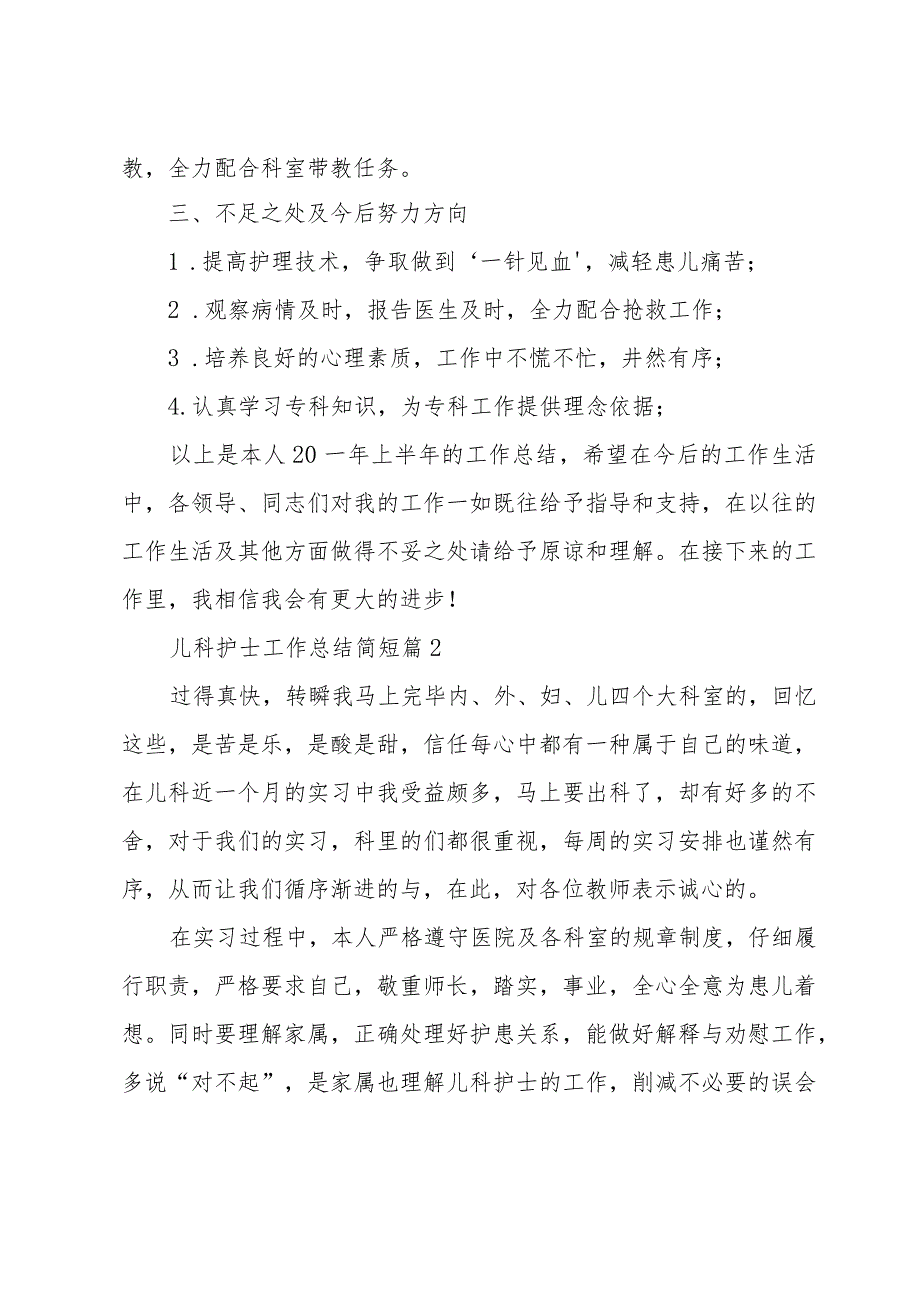 教，全力配合科室带教任务。
三、不足之处及今后努力方向
1 .提高护理技术，争取做到‘一针见血'，减轻患儿痛苦；
2 .观察病情及时，报告医生及时，全力配合抢救工作；
3 .培养良好的心理素质，工作中不慌不忙，井然有序；
4.认真学习专科知识，为专科工作提供理念依据；
以上是本人20一年上半年的工作总结，希望在今后的工作生活
中，各领导、同志们对我的工作一如既往给予指导和支持，在以往的
工作生活及其他方面做得不妥之处请给予原谅和理解。在接下来的工
作里，我相信我会有更大的进步！
儿科护士工作总结简短篇2
过得真快，转瞬我马上完毕内、外、妇、儿四个大科室的，回忆
这些，是苦是乐，是酸是甜，信任每心中都有一种属于自己的味道，
在儿科近一个月的实习中我受益颇多，马上要出科了，却有好多的不
舍，对于我们的实习，科里的们都很重视，每周的实习安排也谨然有
序，从而让我们循序渐进的与，在此，对各位教师表示诚心的。
在实习过程中，本人严格遵守医院及各科室的规章制度，仔细履
行职责，严格要求自己，敬重师长，踏实，事业，全心全意为患儿着
想。同时要理解家属，正确处理好护患关系，能做好解释与劝慰工作，
多说“对不起”，是家属也理解儿科护士的工作，削减不必要的误会